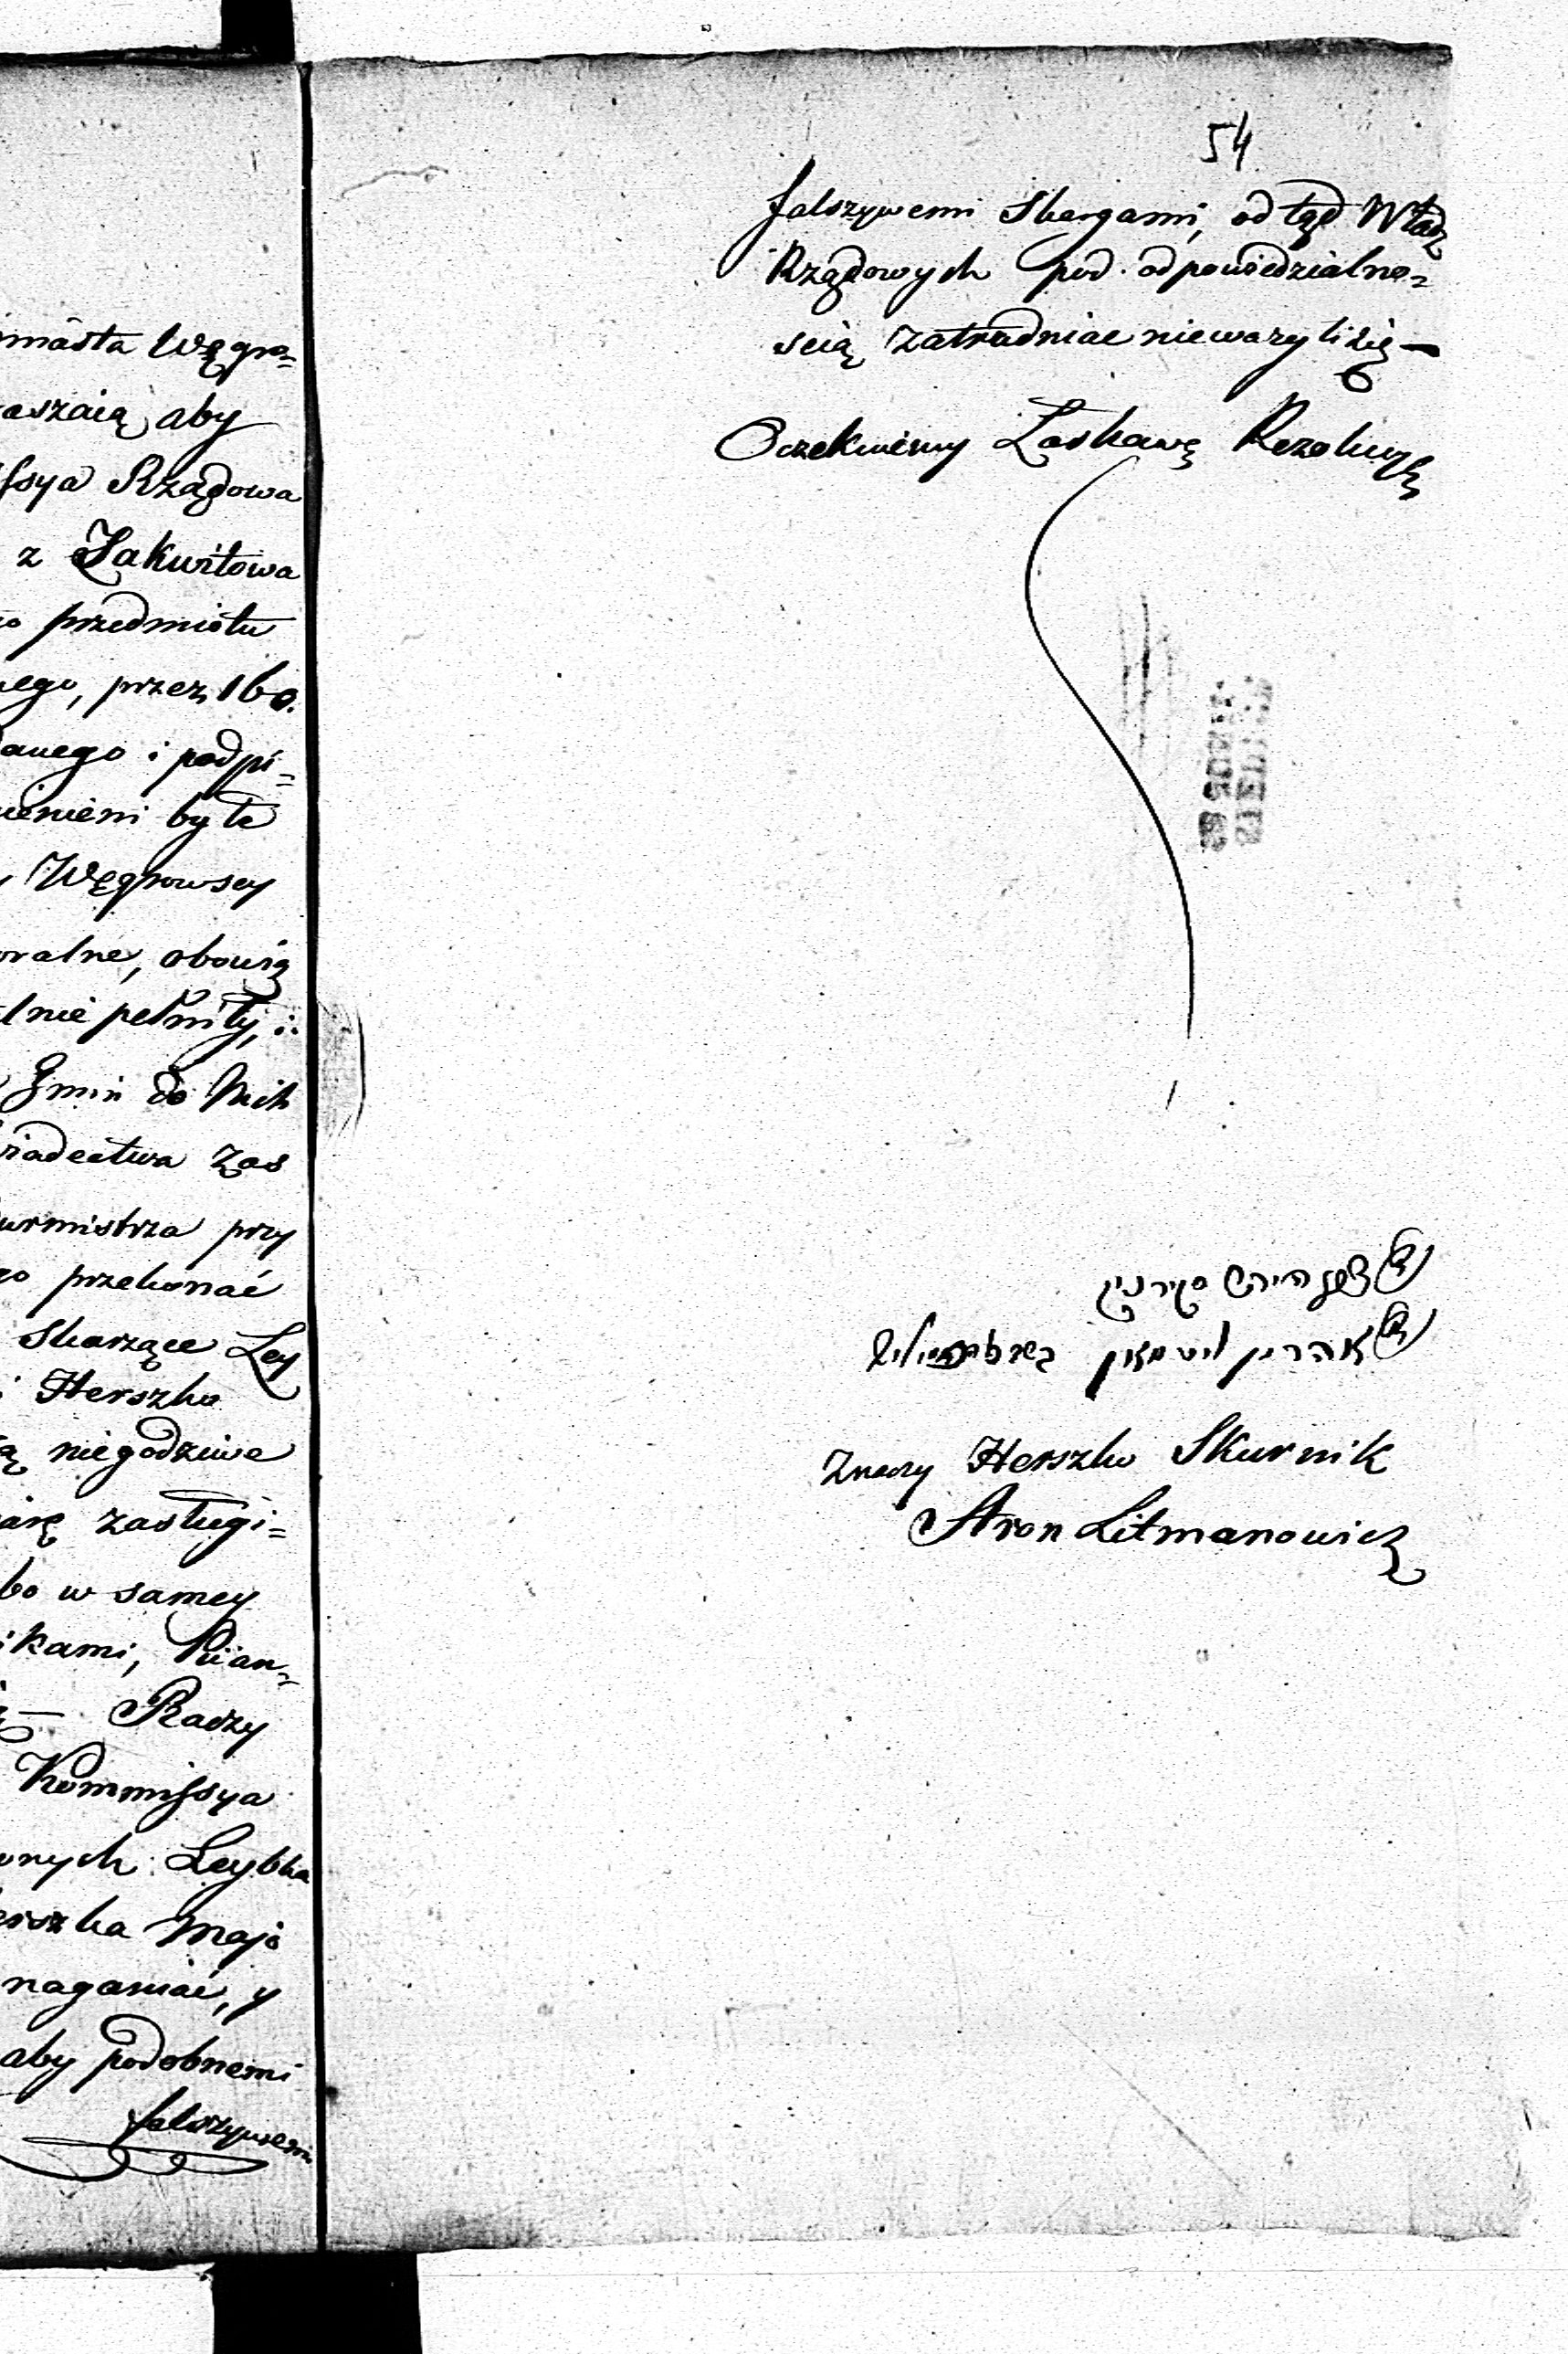 miasta Węgro=
aszaią aby
ssya Rządowa
z Zakwitowa
przedmiotu
nego, przez 160.
danego i podpi=
były
Węgrowscy
oralne, obowią
lnie pełnity, i
Gmin do Nich
iadectwa Zas
urmistrza przy
przekonać
Skarzące Ley
i Herszko
niegodziwe
zasługi=
bo w samey
ikami, Piian=
Raczy
Kommissya
onych Leybka
erszka Majo
naganiać, y
aby podobnemi
falszywemi
54
falszywemi Skargami, od tąd Władz
Rządowych pod odpowiedzialno=
scią zatrudniac niewazyli się —
Oczekuiemy Laskawę Rezolucyę
הירש סקורניק
אהרין ליטמאן
Znaczy Herszko Skurnik
Aron Litmanowicz